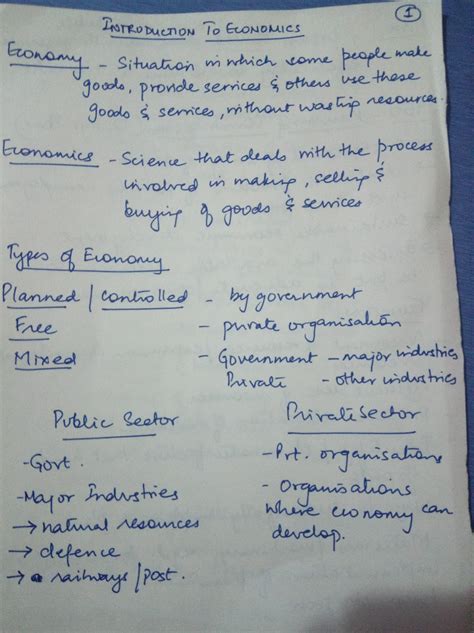 1
INTRODUCTION TO ECONOMICS
Economy - Situation in which some people make
goods, provide services & others use these
goods & services, without wasting resources.
Economics - Science that deals with the process
involved in making, selling &
buying of goods & services
Types of Economy
Planned / controlled - by government
Free - private organisation
Mixed - Government - major industries
Private - other industries
Public Sector
-Govt.
-Major Industries
→ natural resources
→ defence
→ railways/post.
Private Sector
-Prt. organisations
- Organisations
where economy can
develop.